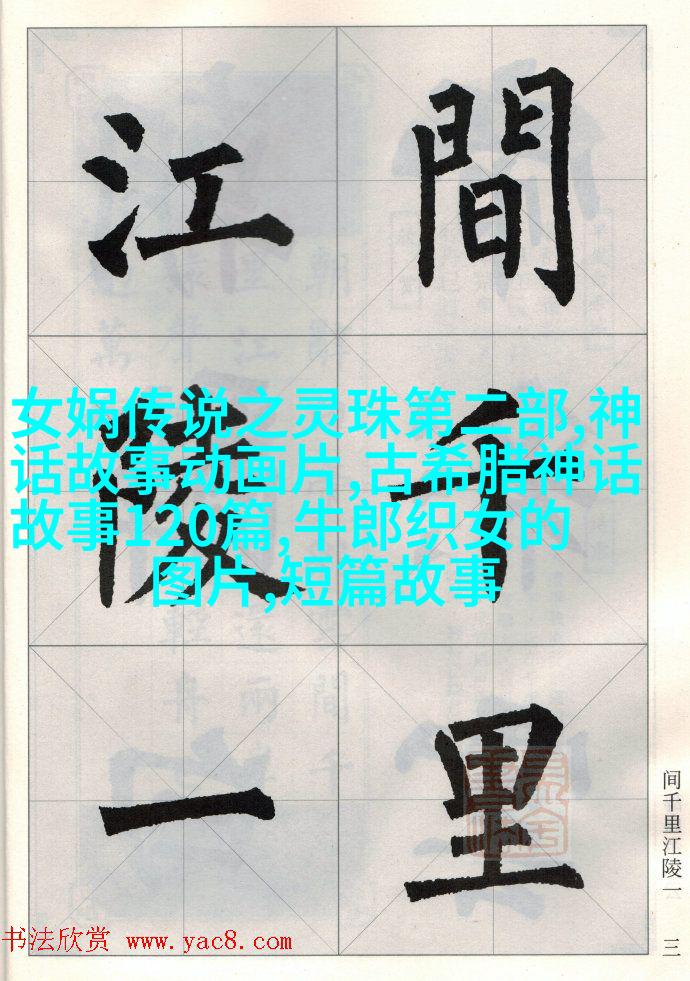 間千里
江陵一
女娲传说之灵珠第二部,神
话故事动画片,古希腊神话
故事120篇,牛郎织女的
图片,短篇故事
间千里江陵一
三
书法欣赏 www.yac8.com